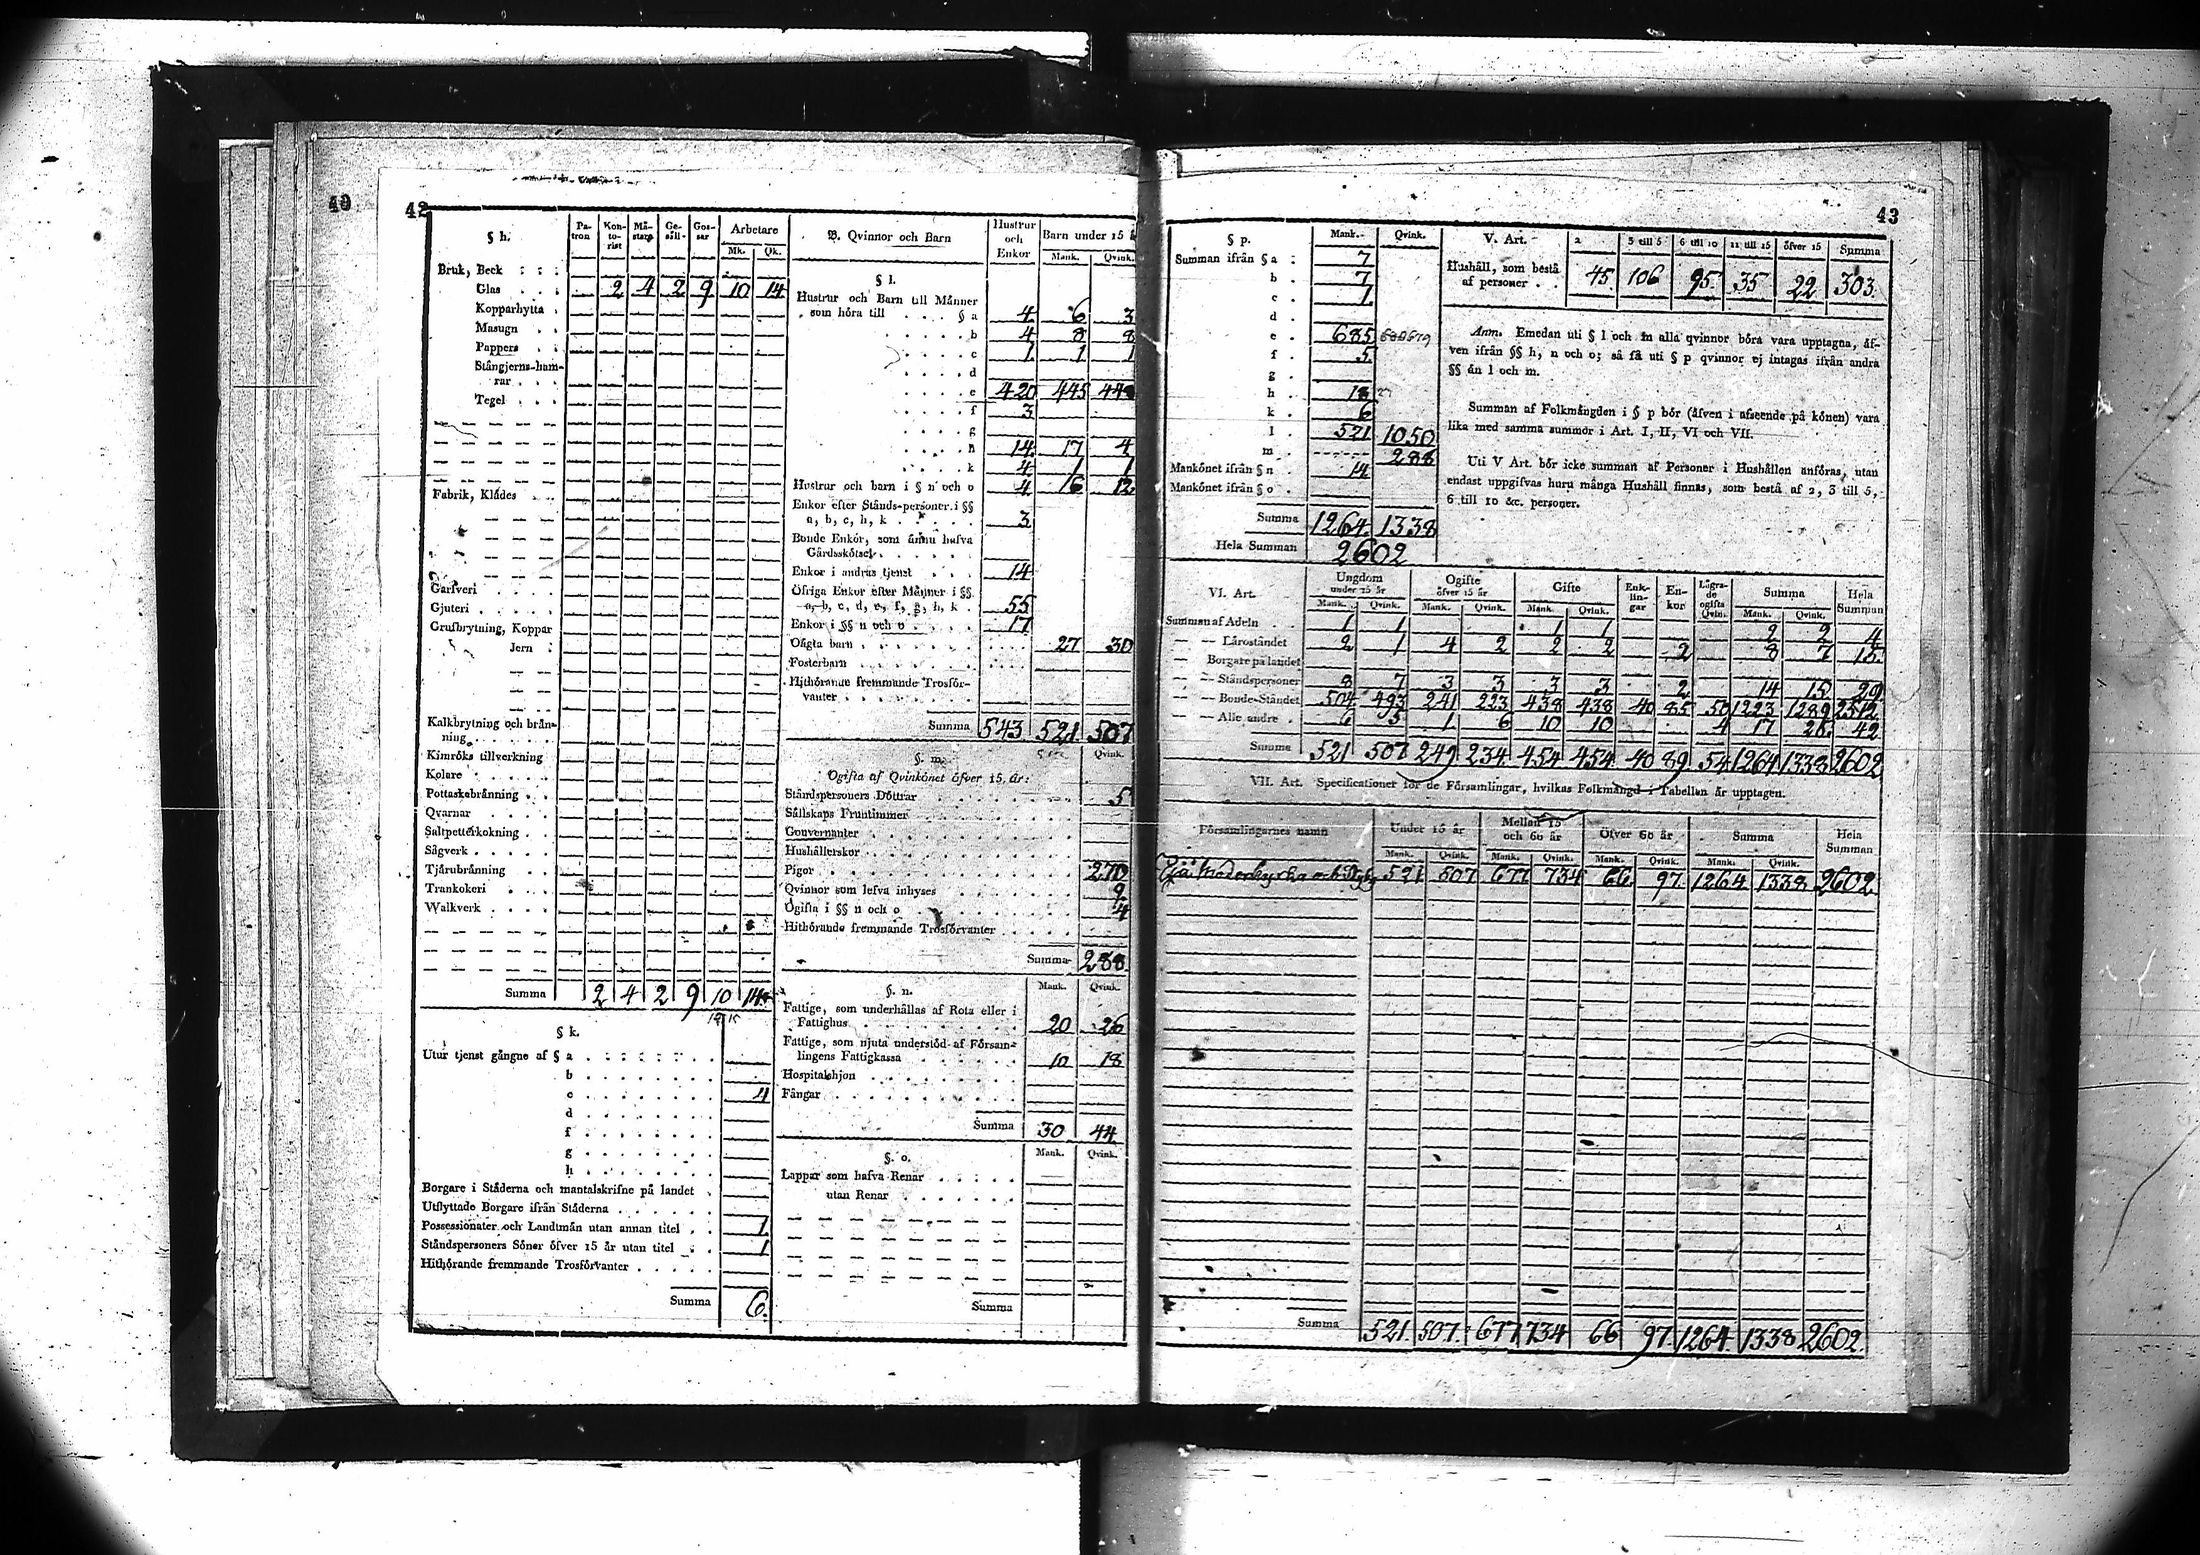 40
42
§ h. Pa-tron Kon-to-rist Mä-stare Ge-säll Gos-sar Arbetare Mk. Qk.
Bruk, Beck
Glas 2 4 2 9 10 14
Kopparhytta
Masugn
Pappers
Stångjerns-ham-
rar
Tegel
Fabrik, Klädes
Garfveri
Gjuteri
Grufbrytning, Koppar
Jern
Kalkbrytning och brän-
ning
Kimröks tillverkning
Kolare
Pottaskebränning
Qvarnar
Saltpetterkokning
Sågverk
Tjärubränning
Trankokeri
Walkverk
Summa 2 4 2 9 10 14
§ k.
Utur tjenst gångne af § a
b
c 4
d
f
g
h
Borgare i Städerna och mantalskrifne på landet
Utflyttade Borgare ifrån Städerna
Possessionater och Landtmän utan annan titel 1
Ståndspersoners Söner öfver 15 år utan titel 1
Hithörande fremmande Trosförvanter
Summa 6.
B. Qvinnor och Barn Hustrur och Enkor Barn under 15 Mank. Qvink.
§ l.
Hustrur och Barn till Männer
som höra till § a 4 6 3
b 4 8 8
c 1 1 1
d
e 420 445
f 3
g
h 14 17 4
k 4 1 1
Hustrur och barn i § n och o 4 16 12
Enkor efter Stånds-personer i §§
a, b, c, h, k 3
Bonde Enkor, som ännu hafva
Gårdsskötsel
Enkor i andras tjenst 14
Öfriga Enkor efter Männer i §§
a, b, c, d, e, f, g, h, k 55
Enkor i §§ n och o 17
Oägta barn 27 30
Fosterbarn
Hithörande fremmande Trosför-
vanter
Summa 543 521 507
§. m. Qvink.
Ogifta af Qvinkönet öfver 15 år:
Ståndspersoners Döttrar 5
Sällskaps Fruntimmer
Gouvernanter
Hushållerskor
Pigor 270
Qvinnor som lefva inhyses 9
Ogifta i §§ n och o 4
Hithörande fremmande Trosförvanter
Summa 288
§. n. Mank. Qvink.
Fattige, som underhållas af Rota eller i
Fattighus 20 26
Fattige, som njuta understöd af Försam-
lingens Fattigkassa 10 18
Hospitalshjon
Fångar
Summa 30 44
§. o. Mank. Qvink.
Lappar som hafva Renar
utan Renar
Summa
43
§ p. Mank. Qvink.
Summan ifrån § a 7
b 7
c 1
d
e 685
f 5
g
h 18
k 6
l 521 1050
m 288
Mankönet ifrån § n 14
Mankönet ifrån § o
Summa 1264 1338
Hela Summan 2602
V. Art. 2 3 till 5 6 till 10 11 till 15 öfver 15 Summa
Hushåll, som bestå
af personer 45 106 95 35 22 303
Anm. Emedan uti § l och m alla qvinnor böra vara upptagna, äf-
ven ifrån §§ h, n och o; så få uti § p qvinnor ej intagas ifrån andra
§§ än l och m.
Summan af Folkmängden i § p bör (äfven i afseende på könen) vara
lika med samma summor i Art. I, II, VI och VII.
Uti V Art. bör icke summan af Personer i Hushållen anföras, utan
endast uppgifvas huru många Hushåll finnas, som bestå af 2, 3 till 5,
6 till 10 &c. personer.
VI. Art. Ungdom under 15 år Ogifte öfver 15 år Gifte Enk-lin-gar En-kor Lägra-de ogifta Qvin. Summa Hela Summan
Mank. Qvink. Mank. Qvink. Mank. Qvink. Mank. Qvink.
Summan af Adeln 1 1 1 1 2 2 4
— — Läroståndet 2 1 4 2 2 2 2 8 7 15
— Borgare på landet
— — Ståndspersoner 8 7 3 3 3 3 2 14 15 29
— — Bonde-Ståndet 504 493 241 223 438 438 40 85 50 1223 1289 2512
— — Alle andre 6 5 1 6 10 10 4 17 25 42
Summa 521 507 249 234 454 454 40 89 54 1264 1338 2602
VII. Art. Specificationer för de Församlingar, hvilkas Folkmängd i Tabellen är upptagen.
Församlingarnes namn Under 15 år Mellan 15 och 60 år Öfver 60 år Summa Hela Summan
Mank. Qvink. Mank. Qvink. Mank. Qvink. Mank. Qvink.
521 507 677 734 66 97 1264 1338 2602
Summa 521 507 677 734 66 97 1264 1338 2602